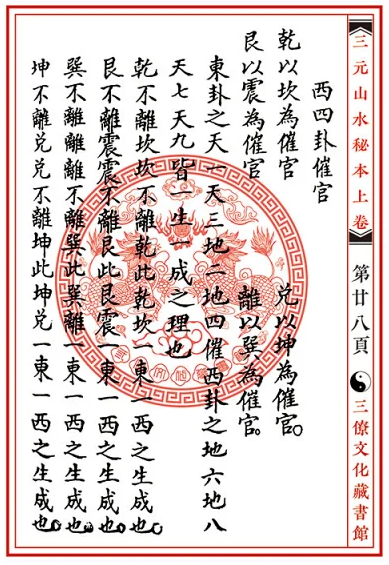 三元山水秘本上卷 第廿八頁 三僚文化藏書館
西四卦催官
乾以坎為催官 兌以坤為催官。
艮以震為催官 離以巽為催官。
東卦之天一天三地二地四催西卦之地六地八
天七天九皆一生一成之理也
乾不離坎坎不離乾此乾坎一東一西之生成也。
艮不離震震不離艮此艮震一東一西之生成也。
巽不離離離不離巽此巽離一東一西之生成也。
坤不離兌兌不離坤此坤兌一東一西之生成也。